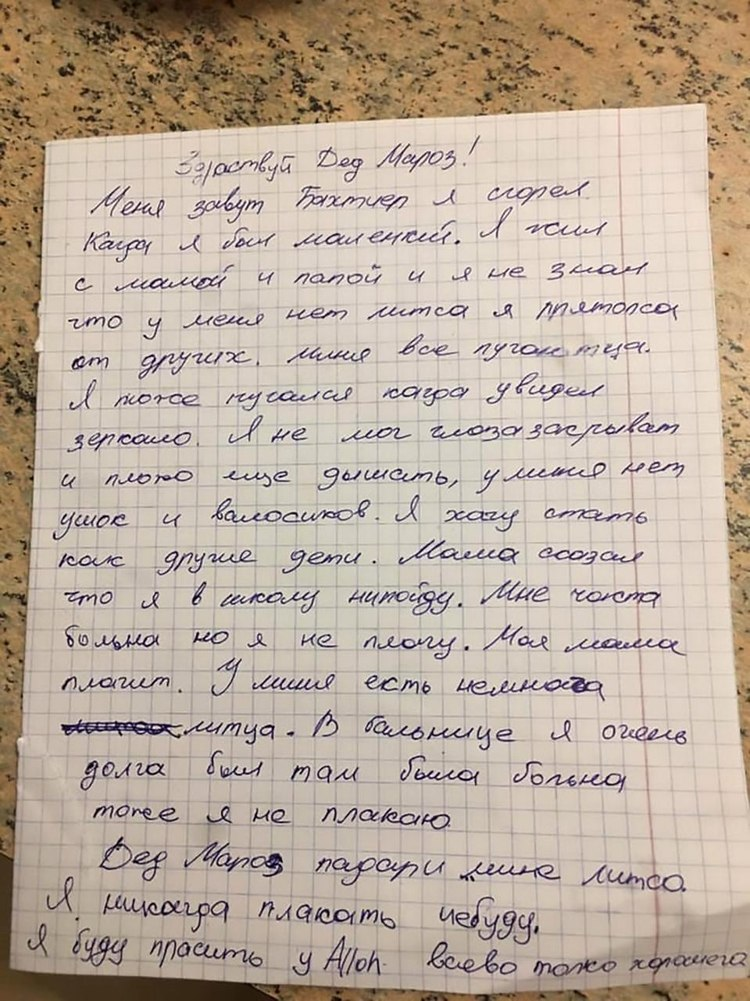 Здраствуй Дед Мароз!
Меня завут Бахтиер я сгорел.
Кагда я был маленкий. Я жил
с мамой и папой и я не знал
что у меня нет литса я прятолса
от других. миня все пугаютца.
Я тоже пугался кагда увидел
зеркало. Я не мог глоза закрыват
и плохо еще дышать, у миня нет
ушок и валосиков. Я хочу стать
как другие дети. Мама сказал
что я в школу нипойду. Мне часта
больна но я не плачу. Моя мама
плачит. У миня есть немнога
литца. В бальнице я очень
долга был там была больна
тоже я не плакаю
Дед Мароз падари мине литсо.
Я никагда плакать небуду.
Я буду прасить у Alloh всево толко хорошега